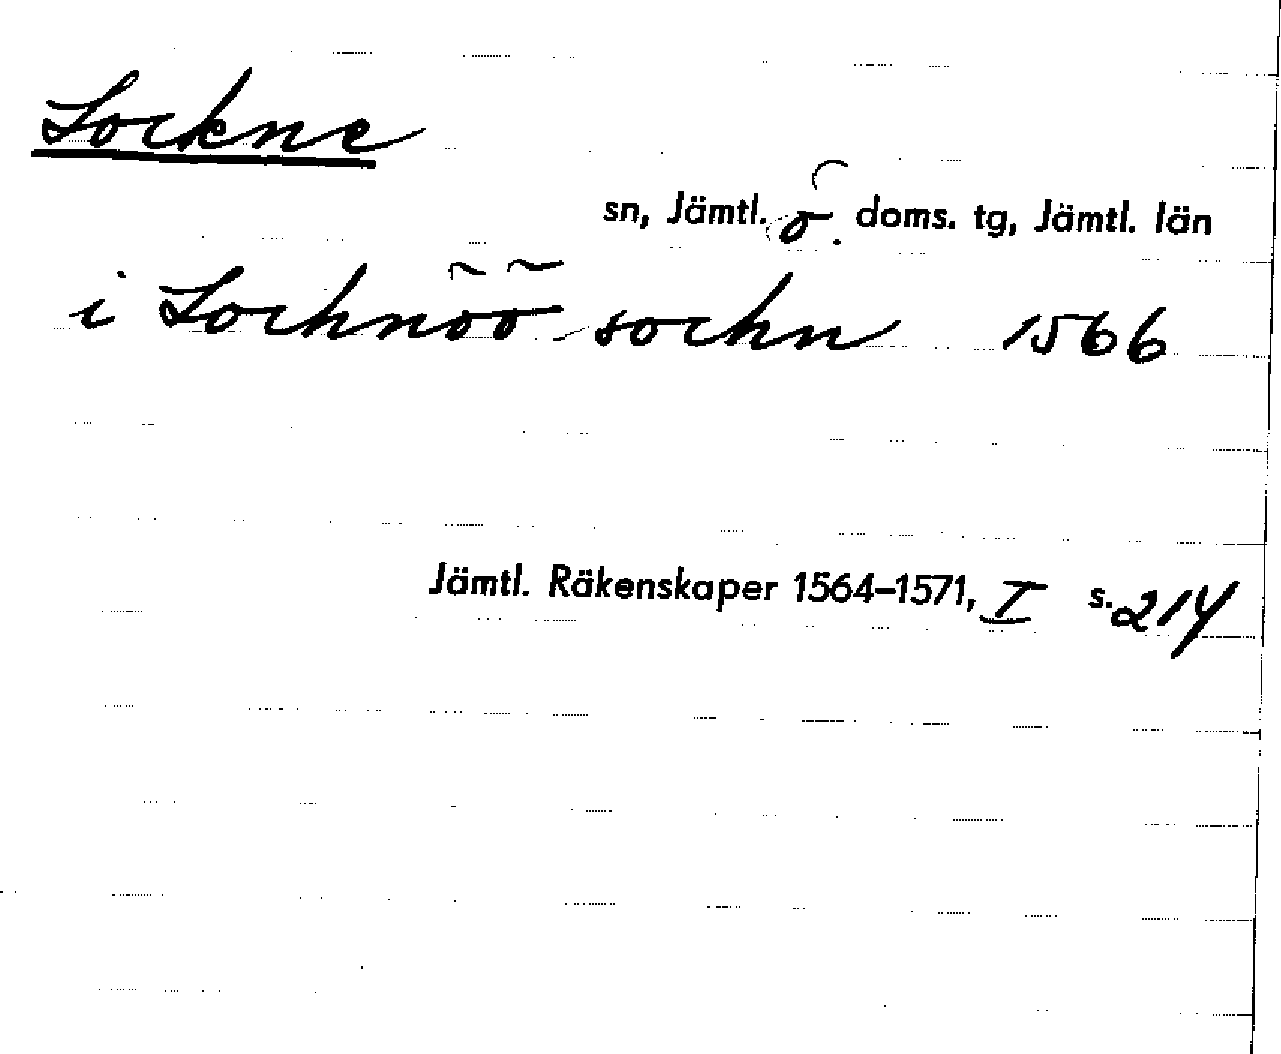 Lockne
sn, Jämtl. ö. doms. tg, Jämtl. län
i Lochnöö sochn 1566
Jämtl. Räkenskaper 1564–1571, I s. 214